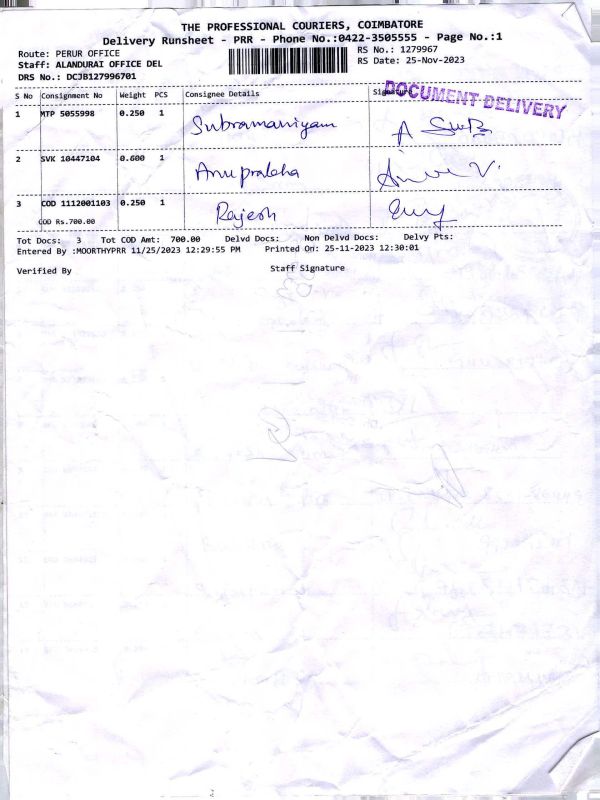 THE PROFESSIONAL COURIERS, COIMBATORE
Delivery Runsheet - PRR - Phone No.:0422-3505555 - Page No.:1
Route: PERUR OFFICE
RS No.: 1279967
Staff: ALANDURAI OFFICE DEL
RS Date: 25-Nov-2023
DRS No.: DCJB127996701
DOCUMENT DELIVERY
S No Consignment No Weight PCS Consignee Details Signature
1 MTP 5055998 0.250 1 Subramaniyam
2 SVK 10447104 0.600 1 Anuprabha
3 COD 1112001103 0.250 1 Rajesh
COD Rs.700.00
Tot Docs: 3 Tot COD Amt: 700.00 Delvd Docs: Non Delvd Docs: Delvy Pts:
Entered By :MOORTHYPRR 11/25/2023 12:29:55 PM Printed On: 25-11-2023 12:30:01
Verified By Staff Signature